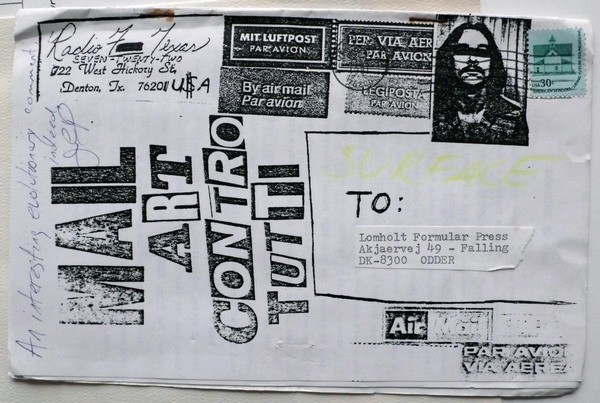 Radio Texas
SEVEN-TWENTY-TWO
722 West Hickory St,
Denton, Tx. 76201 USA
MIT LUFTPOST
PAR AVION
PER VIA AER
PAR AVION
By air mail
Par avion
LEGIPOSTA
PAR AVION
USA 30c
An interesting evolutionary comment
indeed
MAIL
ART
CONTRO
TUTTI
SURFACE
TO:
Lomholt Formular Press
Akjaervej 49 - Falling
DK-8300 ODDER
Air Mail
PAR AVIO
VIA AEREA